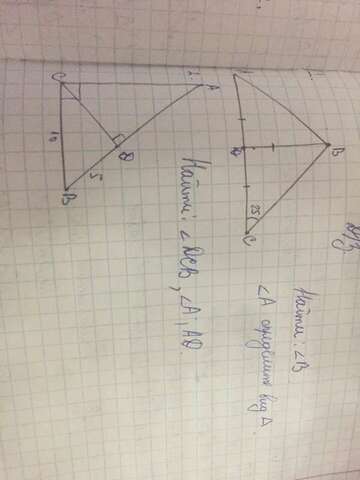 Д/з
1.
A
B
D
C
25
Найти: ∠B
∠A определить вид Δ.
2.
A
C
D
B
10
5
Найти: ∠DCB, ∠A, AD.